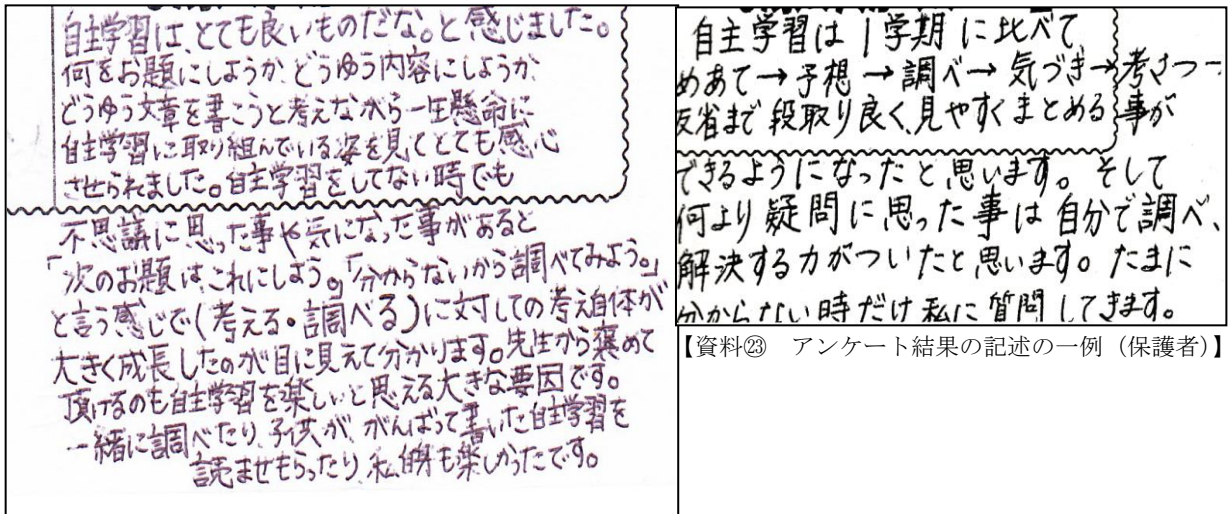 自主学習は、とても良いものだな。と感じました。
何をお題にしようか、どうゆう内容にしようか、
どうゆう文章を書こうと考えながら一生懸命に
自主学習に取り組んでいる姿を見てとても感心
させられました。自主学習をしてない時でも
不思議に思った事や気になった事があると
「次のお題は、これにしよう。」「分からないから調べてみよう。」
と言う感じで(考える。調べる)に対しての考え自体が
大きく成長したのが目に見えて分かります。先生から褒めて
頂けるのも自主学習を楽しいと思える大きな要因です。
一緒に調べたり、子供が、がんばって書いた自主学習を
読ませもらったり、私自身も楽しかったです。
自主学習は1学期に比べて
めあて→予想→調べ→気づき→考さつ→
反省まで段取り良く、見やすくまとめる事が
できるようになったと思います。そして
何より疑問に思った事は自分で調べ、
解決する力がついたと思います。たまに
分からない時だけ私に質問してきます。
【資料㉓　アンケート結果の記述の一例（保護者）】